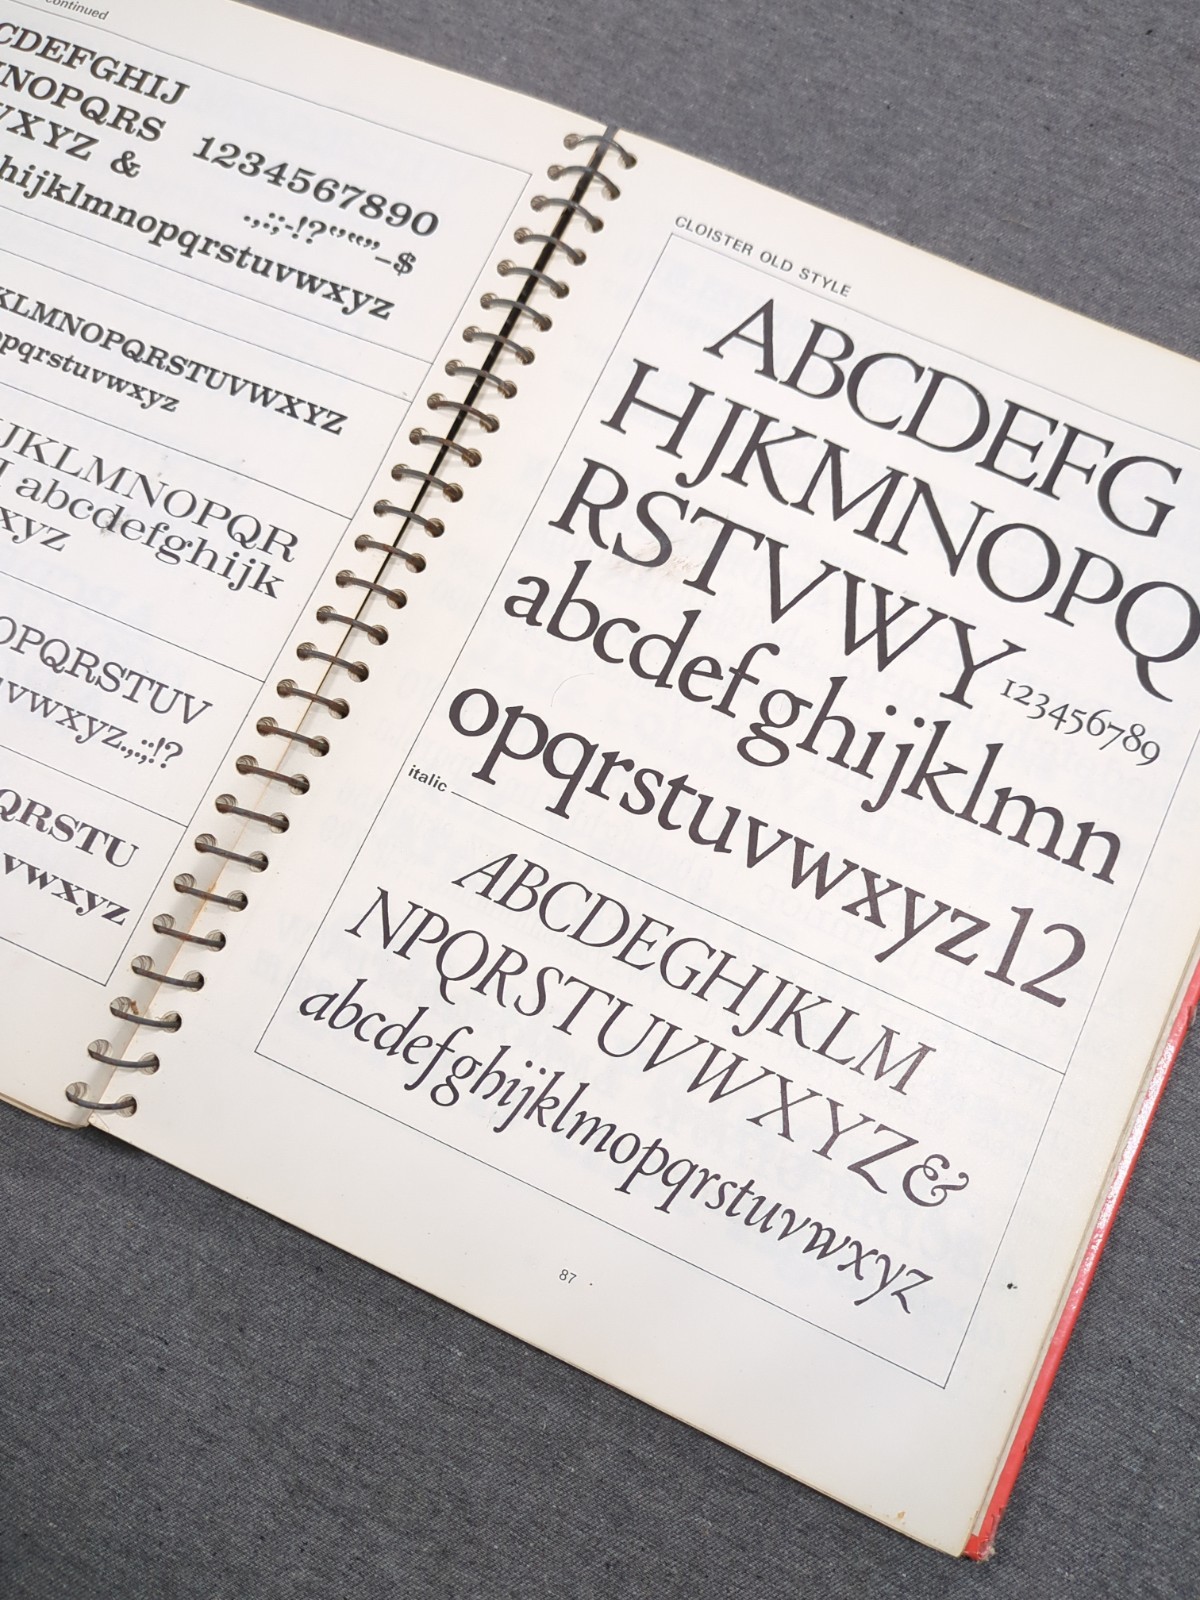 continued
CDEFGHIJ
NOPQRS
VXYZ &
1234567890
.,:;-!?‘’“”–$
hijklmnopqrstuvwxyz
KLMNOPQRSTUVWXYZ
opqrstuvwxyz
JKLMNOPQR
abcdefghijk
xyz
OPQRSTUV
vwxyz.,:;!?
QRSTU
vwxyz
CLOISTER OLD STYLE
ABCDEFG
HJKMNOPQ
RSTVWY 123456789
abcdefghijklmn
opqrstuvwxyz12
italic
ABCDEGHJKLM
NPQRSTUVWXYZ&
abcdefghijklmopqrstuvwxyz
87